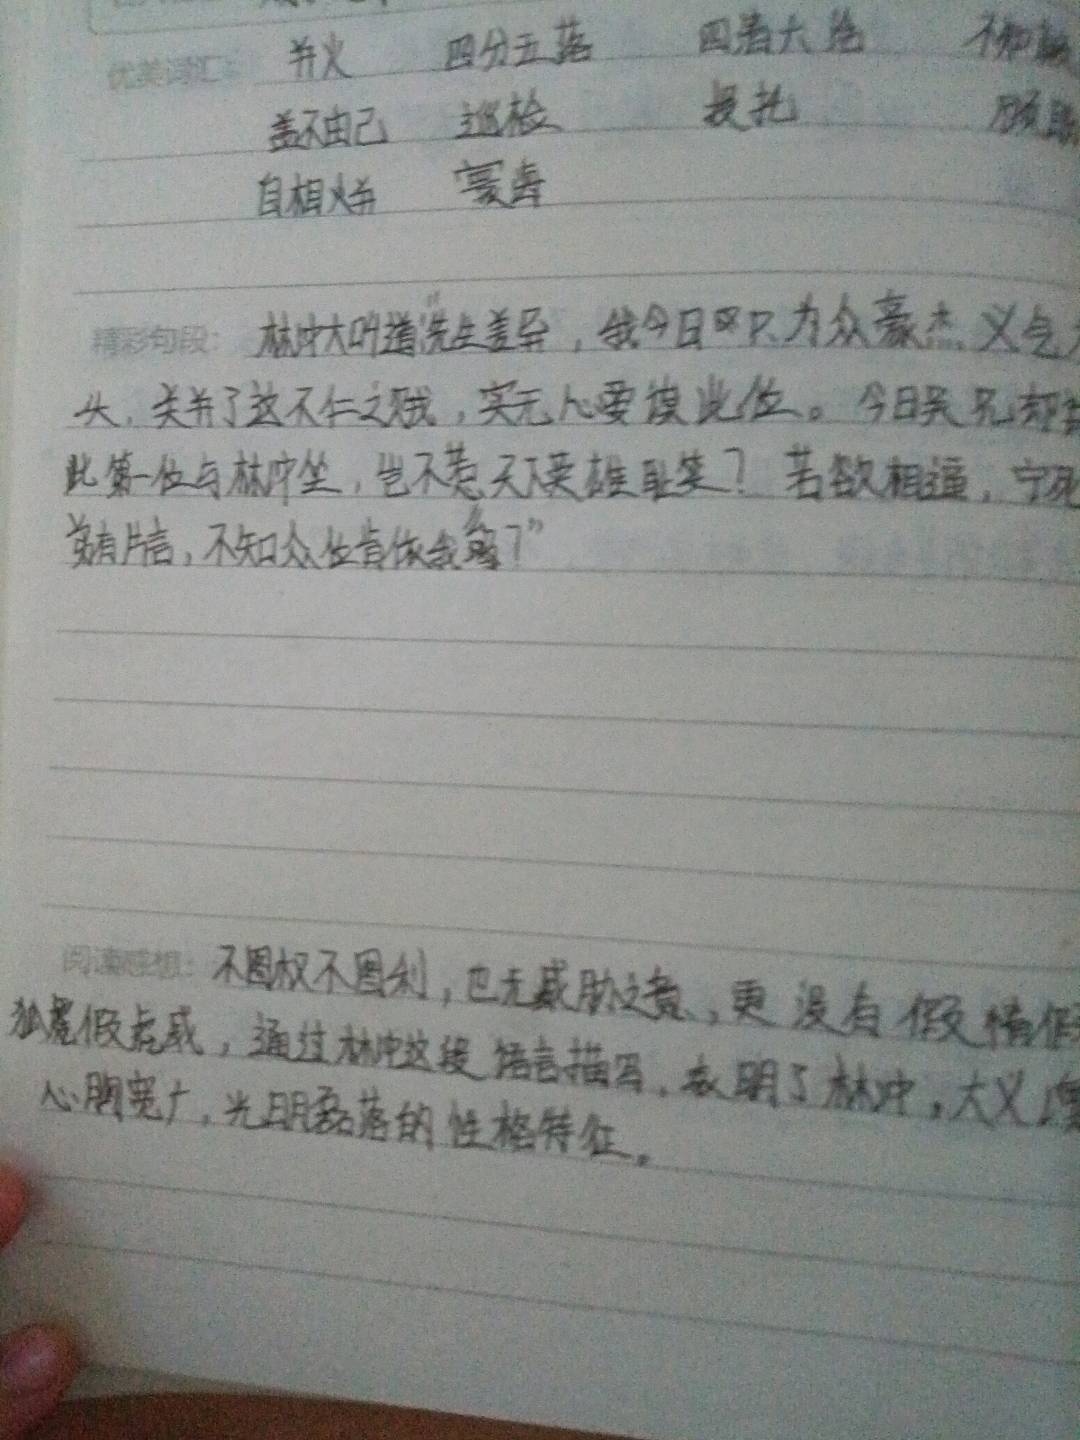 优美词汇： 并火 四分五落
盖不由己 巡检
自相火并
精彩句段： 林冲大叫道"先生差异，我今日只为众豪杰义气
头，关并了这不仁之贼，实无心要谋此位。今日吴兄却
此第一位与林冲坐，岂不惹天下英雄耻笑？若欲相逼，宁死
弟有片言，不知众位肯依我么？"
阅读感想： 不图权不图利，也无威胁之意，更没有假情假
狐假虎威，通过林冲这段语言描写，表明了林冲，大义
心胸宽广，光明磊落的性格特征。